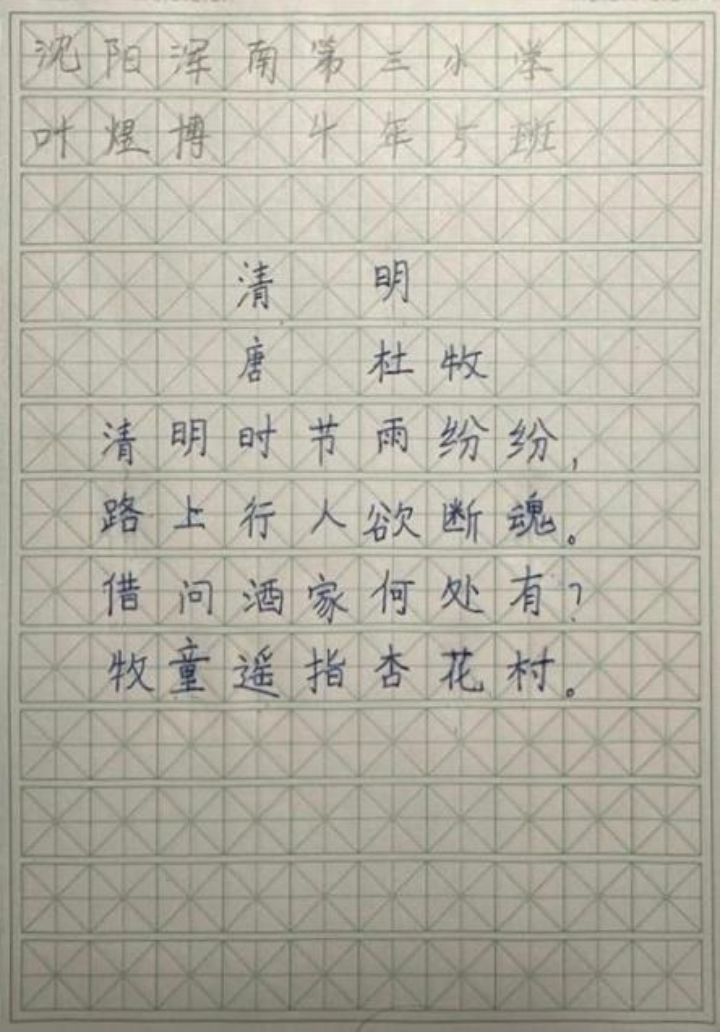 沈阳浑南第三小学
叶煜博 4年5班
清 明
唐 杜牧
清明时节雨纷纷,
路上行人欲断魂。
借问酒家何处有?
牧童遥指杏花村。